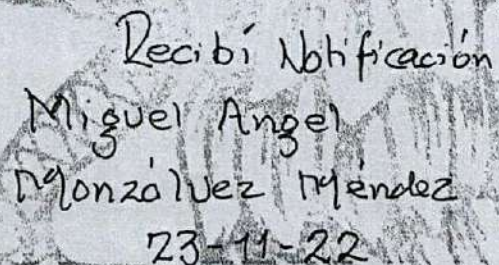 Recibí Notificación
Miguel Angel
Monzálvez Méndez
23-11-22